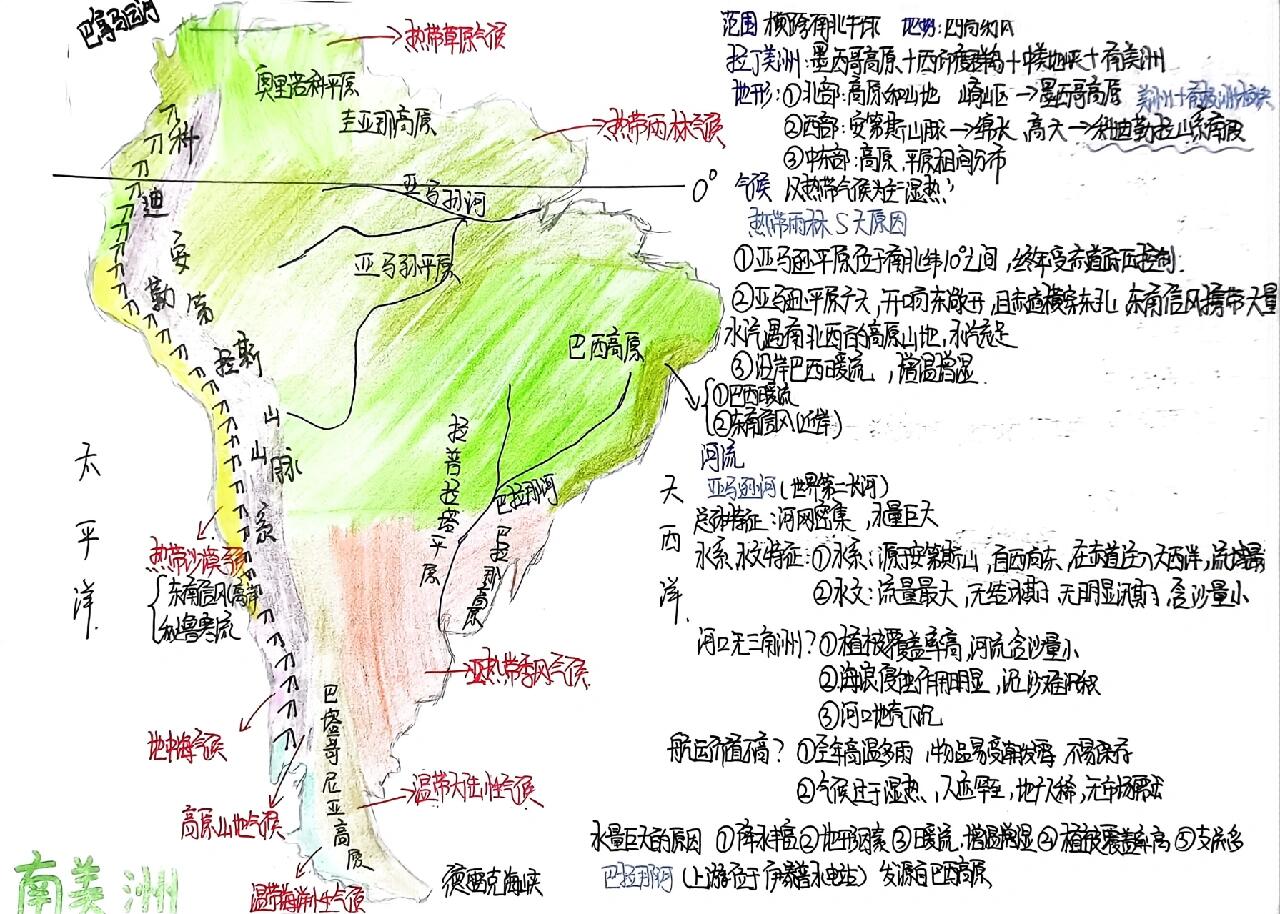 巴拿马运河
热带草原气候
奥里诺科平原
圭亚那高原
热带雨林气候
0°
亚马孙河
亚马孙平原
巴西高原
科迪勒拉山系
安第斯山脉
拉普拉塔平原
巴拉那河
巴拉那高原
太平洋
大西洋
热带沙漠气候
东南信风离岸
秘鲁寒流
亚热带季风气候
地中海气候
巴塔哥尼亚高原
温带大陆性气候
高原山地气候
温带海洋性气候
德雷克海峡
南美洲
范围 横跨南北半球
拉丁美洲:墨西哥高原+西印度群岛+中美地峡+南美洲
地形:①北部:高原和山地 崎岖 →墨西哥高原
②西部:安第斯山脉→绵长 高大→科迪勒拉山系南段
③中东部:高原、平原相间分布
气候 以热带气候为主 湿热?
热带雨林S大原因
①亚马孙平原位于南北纬10°之间,终年受赤道低压控制.
②亚马孙平原广大,开口向东敞开,且赤道横穿东孔,东南信风携带大量
水汽遇南北西的高原山地,水汽充足
③沿岸巴西暖流,增温增湿.
①巴西暖流
②东南信风(近岸)
河流
亚马孙河(世界第二长河)
总特征:河网密集,水量巨大
水系水文特征:①水系:源于安第斯山,自西向东,在赤道注入大西洋,流域最
②水文:流量最大,无结冰期 无明显汛期,含沙量小
河口无三角洲?①植被覆盖率高,河流含沙量小
②海浪侵蚀作用明显,泥沙难沉积
③河口地壳下沉
航运价值不高?①全年高温多雨,物品易受潮发霉,不易保存
②气候过于湿热,人迹罕至,地广人稀,无市场需求
水量巨大的原因 ①降水丰富②地形因素③暖流,增温增湿④植被覆盖率高⑤支流多
巴拉那河(上游位于伊泰普水电站) 发源自巴西高原